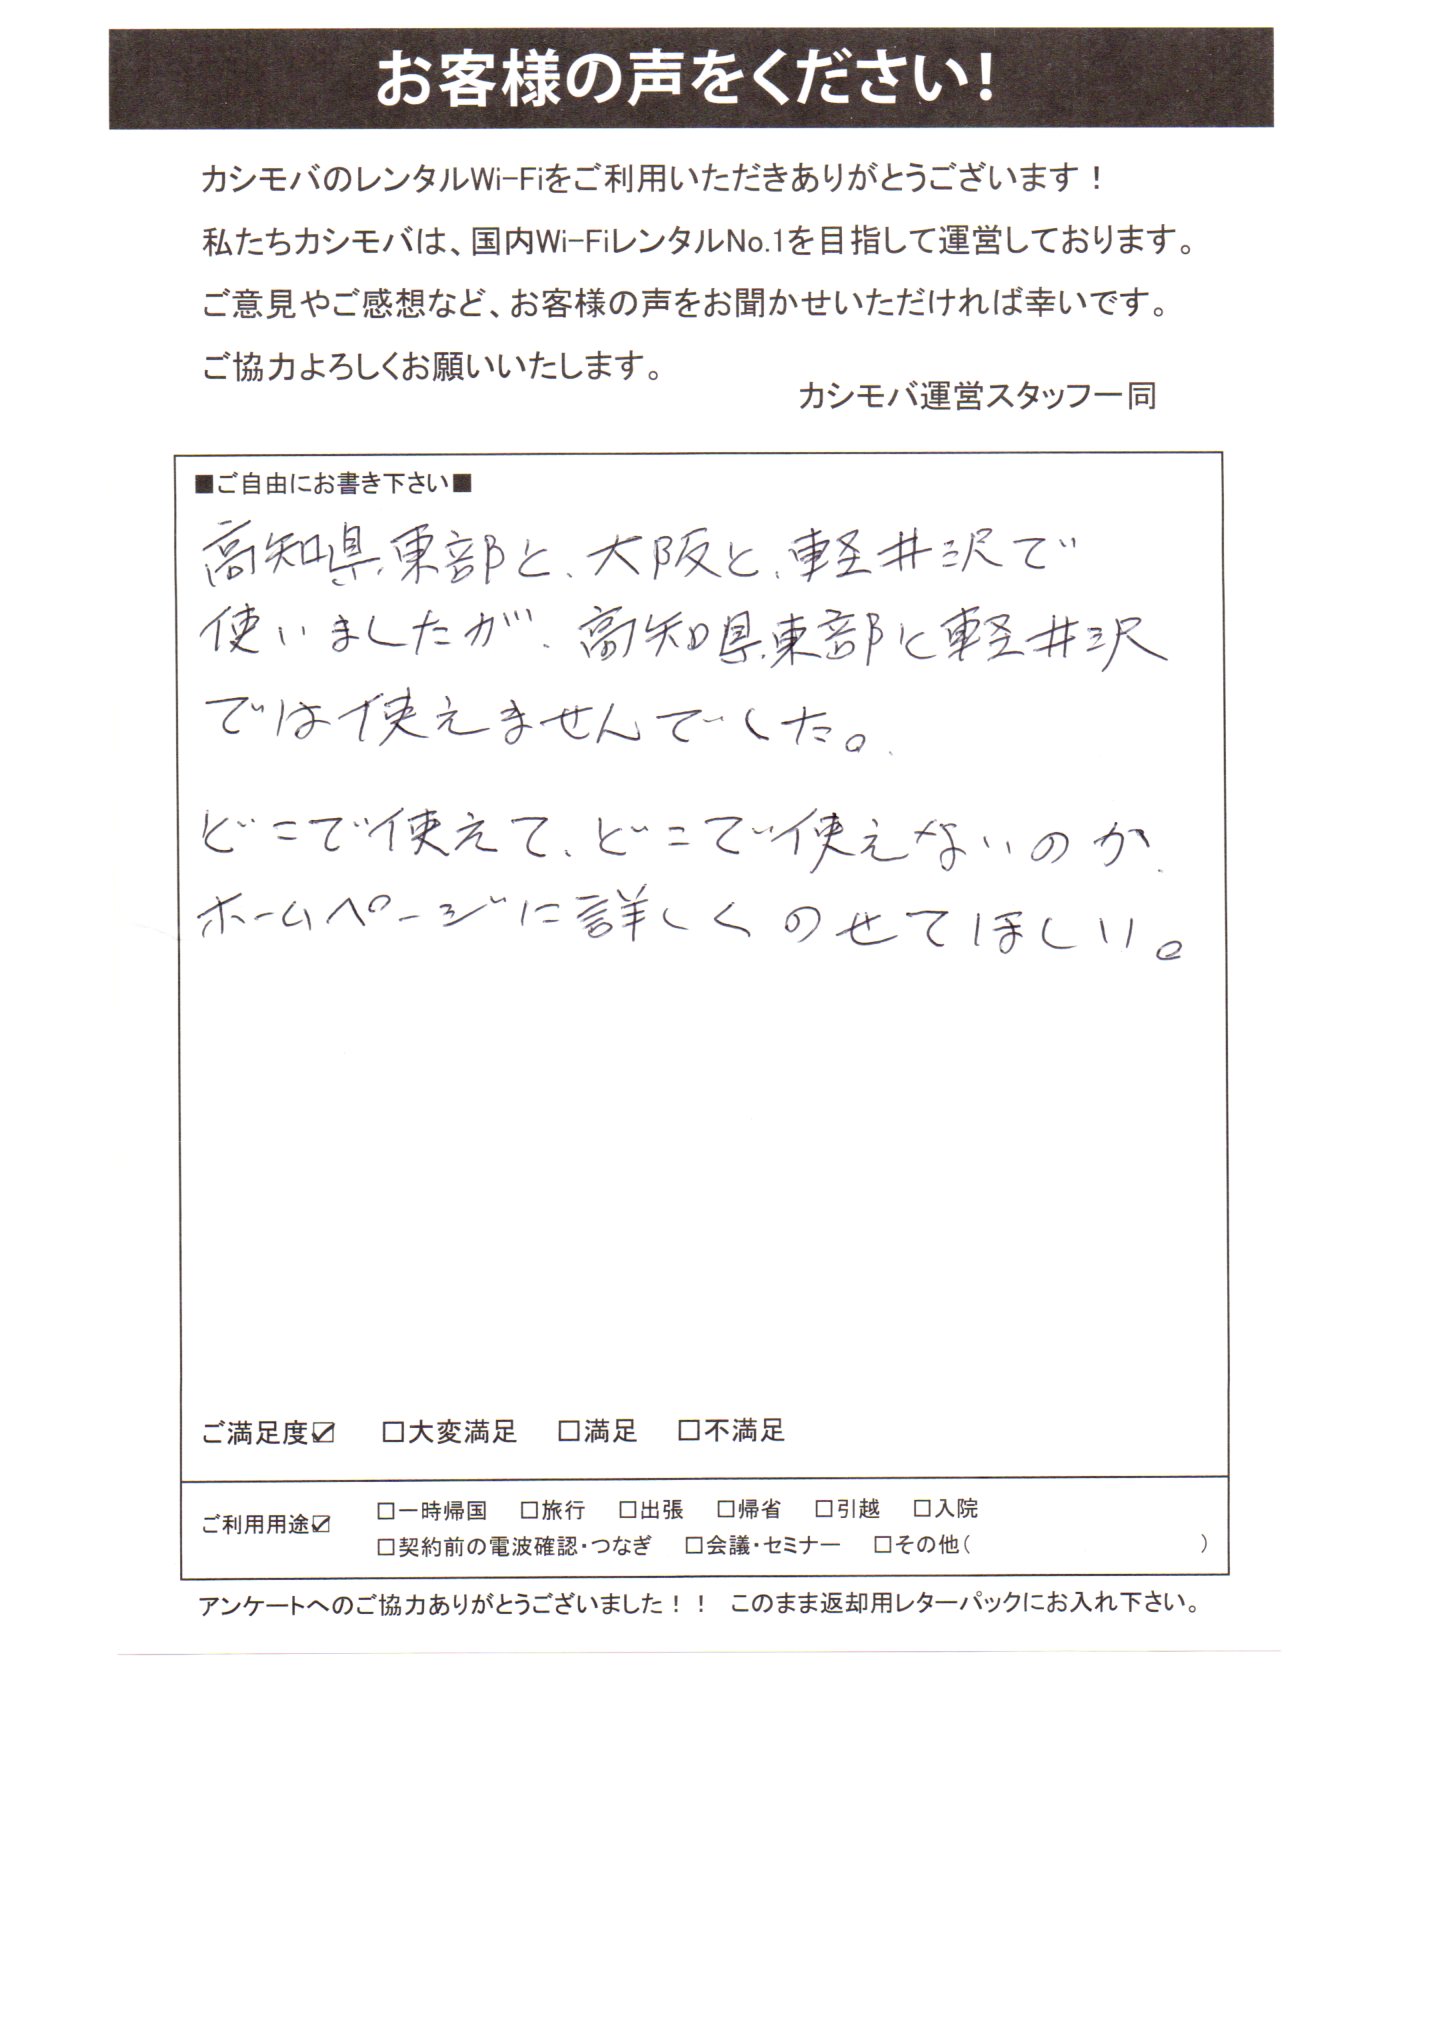 お客様の声をください！
カシモバのレンタルWi-Fiをご利用いただきありがとうございます！
私たちカシモバは、国内Wi-FiレンタルNo.1を目指して運営しております。
ご意見やご感想など、お客様の声をお聞かせいただければ幸いです。
ご協力よろしくお願いいたします。
カシモバ運営スタッフ一同
■ご自由にお書き下さい■
高知県東部と、大阪と、軽井沢で
使いましたが、高知県東部と軽井沢
では使えませんでした。
どこで使えて、どこで使えないのか、
ホームページに詳しくのせてほしい。
ご満足度☑ □大変満足 □満足 □不満足
ご利用用途☑ □一時帰国 □旅行 □出張 □帰省 □引越 □入院
□契約前の電波確認・つなぎ □会議・セミナー □その他（ ）
アンケートへのご協力ありがとうございました！！ このまま返却用レターパックにお入れ下さい。